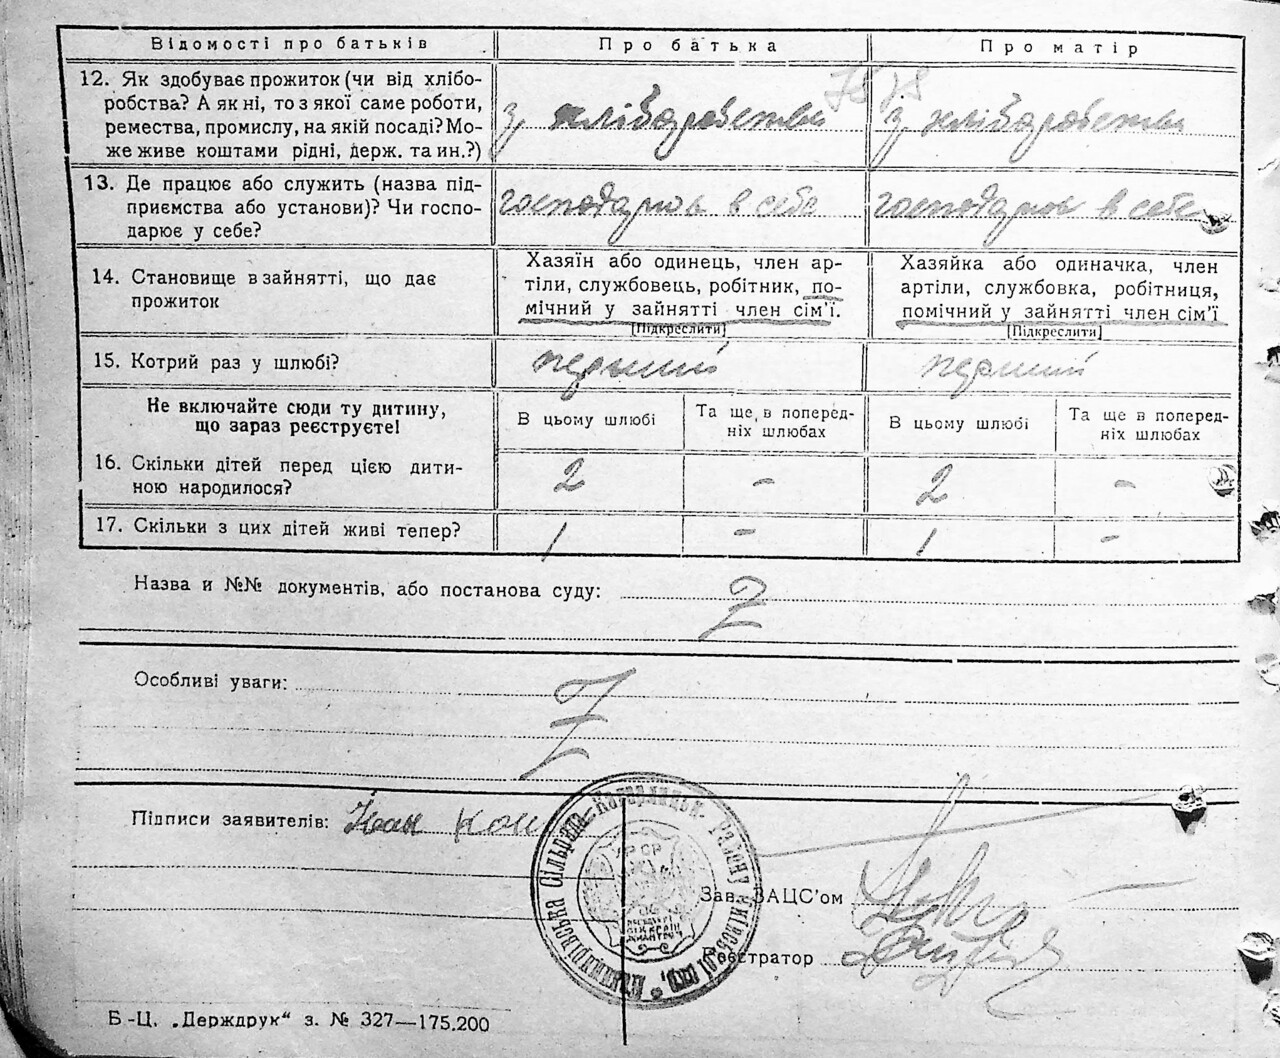 Відомості про батьків Про батька Про матір
12. Як здобуває прожиток (чи від хлібо-
робства? А як ні, то з якої саме роботи,
ремества, промислу, на якій посаді? Мо-
же живе коштами рідні, держ. та ин.?)
з хліборобства з хліборобства
13. Де працює або служить (назва під-
приємства або установи)? Чи госпо-
дарює у себе?
господарює в себе господарює в себе
14. Становище в зайнятті, що дає
прожиток
Хазяїн або одинець, член ар-
тіли, службовець, робітник, по-
мічний у зайнятті член сім'ї.
[Підкреслити]
Хазяйка або одиначка, член
артіли, службовка, робітниця,
помічний у зайнятті член сім'ї
[Підкреслити]
15. Котрий раз у шлюбі? перший перший
Не включайте сюди ту дитину,
що зараз реєструєте!
В цьому шлюбі
Та ще в поперед-
ніх шлюбах
В цьому шлюбі
Та ще в поперед-
ніх шлюбах
16. Скільки дітей перед цією дити-
ною народилося?
2 - 2 -
17. Скільки з цих дітей живі тепер? 1 - 1 -
Назва и №№ документів, або постанова суду:
Особливі уваги:
Підписи заявителів: Іван
Зав. ЗАЦС'ом
Реєстратор
УСРР
Б-Ц. „Держдрук" з. № 327—175.200